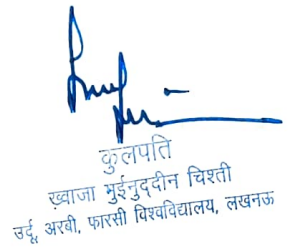 कुलपति
ख्वाजा मुईनुद्दीन चिश्ती
उर्दू, अरबी, फारसी विश्वविद्यालय, लखनऊ